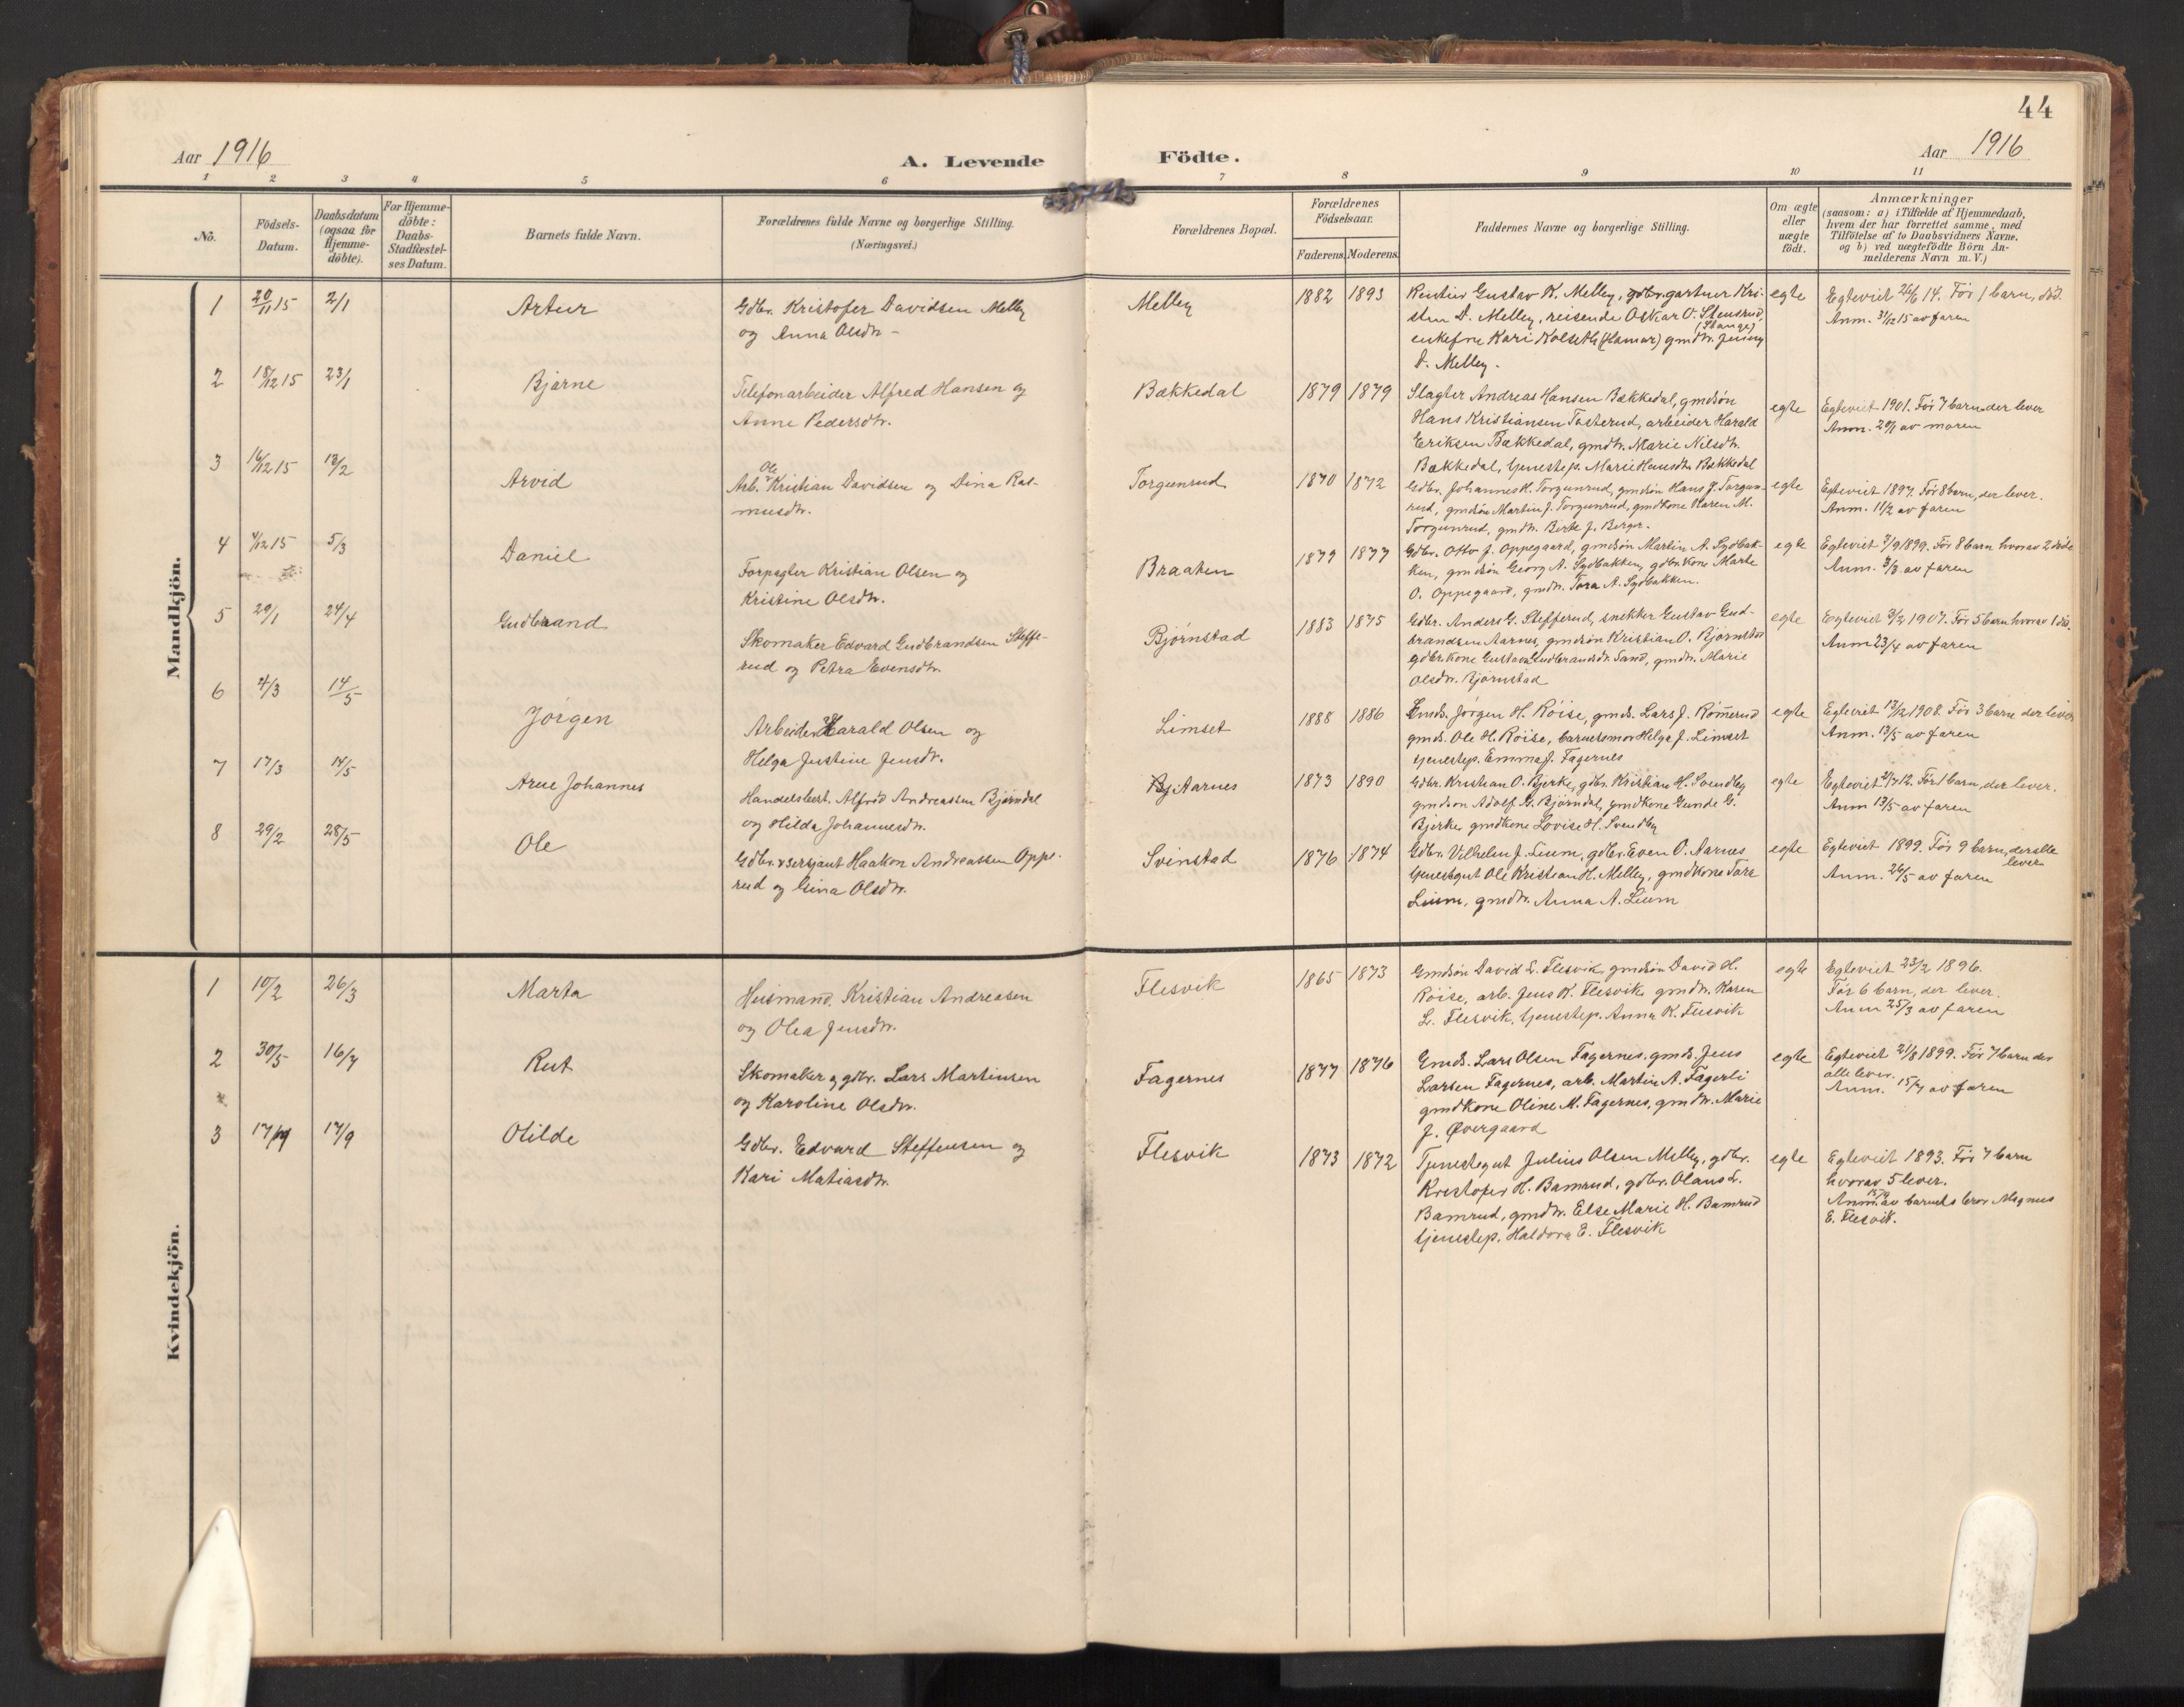 44
Aar 1916
A. Levende
Födte.
Aar 1916
1 2 3 4 5 6 7 8 9 10 11
No.
Födsels-
Datum.
Daabsdatum
(ogsaa for
Hjemme-
döbte).
For Hjemme-
döbte:
Daabs-
Stadfæstel-
ses Datum.
Barnets fulde Navn.
Forældrenes fulde Navne og borgerlige Stilling.
(Næringsvei.)
Forældrenes Bopæl.
Forældrenes
Födselsaar.
Faderens. Moderens.
Faddernes Navne og borgerlige Stilling.
Om ægte
eller
uægte
födt.
Anmærkninger
(saasom: a) i Tilfælde af Hjemmedaab,
hvem der har forrettet samme, med
Tilföielse af to Daabsvidners Navne,
og b) ved uægtefödte Börn An-
melderens Navn m. V.)
Mandkjön.
1 20/11 15 2/1 Artur
Gdbr. Kristofer Davidsen Melby
og Anna Olsdtr. -
Melby 1882 1893
Rentier Gustav K. Melby, gartner Kri-
sten D. Melby, reisende Oskar O. Stensrud,
(Stange)
enkefru Kari Kolseth (Hamar) gmdtr. Jenny
D. Melby.
egte
Egteviet 26/6 14. Før 1 barn, død.
Anm. 31/12 15 av faren
2 18/12 15 23/1 Bjarne
Telefonarbeider Alfred Hansen og
Anne Pedersdtr.
Bækkedal 1879 1879
Slagter Andreas Hansen Bækkedal, gmdsøn
Hans Kristiansen Tosterud, arbeider Harald
Eriksen Bækkedal, gmdtr. Marie Nilsdtr.
Bækkedal, tjenestep. Marie Hansdtr. Bækkedal
egte
Egteviet 1901. Før 7 barn der lever
Anm. 20/1 av moren
3 16/12 15 13/2 Arvid
Ole
Arb. Kristian Davidsen og Dina Ras-
musdtr.
Torgunrud 1870 1872
Gdbr. Johannes H. Torgunrud, gmdsøn Hans J. Torgun-
rud, gmdsøn Martin J. Torgunrud, gmdkone Karen M.
Torgunrud, gmdtr. Berte J. Berger.
egte
Egteviet 1897. Før 8 barn, der lever.
Anm. 11/2 av faren
4 4/12 15 5/3 Daniel
Forpagter Kristian Olsen og
Kristine Olsdtr.
Braaten 1879 1877
Gdbr. Otto J. Oppegaard, gmdsøn Martin A. Sydbak-
ken, gmdsøn Georg A. Sydbakken, gdbr.kone Marte
O. Oppegaard, gmdtr. Tora A. Sydbakken.
egte
Egteviet 7/9 1899. Før 8 barn hvorav 2 døde
Anm. 3/3 av faren
5 29/1 24/4 Gudbrand
Skomaker Edvard Gudbrandsen Steffe-
rud og Petra Evensdtr.
Bjørnstad 1883 1875
Gdbr. Anders G. Stefferud, snekker Gustav Gud-
brandsen Aarnes, gmdsøn Kristian O. Bjørnstad
gdbr.kone Gustava Gudbrandsdtr. Sand, gmdtr. Marie
Olsdtr. Bjørnstad
egte
Egteviet 3/2 1907. Før 5 barn hvorav 1 dø.
Anm 23/4 av faren
6 4/3 14/5 Jørgen
Arbeider Harald Olsen og
Helga Justine Jensdtr.
Limset 1888 1886
Gmds. Jørgen H. Røise, gmds. Lars J. Rømerud
gmds. Ole H. Røise, barnets mor Helga J. Limset
tjenestep. Emma J. Fagernes
egte
Egteviet 13/12 1908. Før 3 barn der lever
Anm. 13/5 av faren
7 17/3 14/5 Arne Johannes
Handelsbest. Alfred Andreassen Bjørndal
og Hilda Johannesdtr.
Aarnes 1873 1890
Gdbr. Kristian O. Bjerke, gdbr. Kristian H. Svendby
gmdsøn Adolf A. Bjørndal, gmdkone Gunde G.
Bjerke, gmdkone Lovise H. Svendby
egte
Egteviet 2/7 12. Før 1 barn, der lever.
Anm 13/5 av faren
8 29/2 28/5 Ole
Gdbr. & sersjant Haakon Andreassen Oppe-
rud og Gina Olsdtr.
Svinstad 1876 1874
Gdbr. Vilhelm J. Lium, gdbr. Even O. Aarnes
tjenestegut Ole Kristian H. Melby, gmdkone Tora
Lium, gmdtr. Anna A. Lium
egte
Egteviet 1899. Før 9 barn, der alle
lever
Anm. 26/5 av faren
Kvindekjön.
1 10/2 26/3 Marta
Husmand. Kristian Andreasen
og Olea Jensdtr.
Flesvik 1865 1873
Gmdsøn David L. Flesvik, gmdsøn David H.
Røise, arb. Jens K. Flesvik, gmdtr. Karen
L. Flesvik, tjenestep. Anna K. Flesvik
egte
Egteviet 23/2 1896.
Før 6 barn, der lever.
Anm 25/3 av faren
2 30/5 16/7 Rut
Skomaker og gdbr. Lars Martinsen
og Karoline Olsdtr.
Fagernes 1877 1876
Gmds. Lars Olsen Fagernes, gmds. Jens
Larsen Fagernes, arb. Martin A. Fagerli
gmdkone Oline M. Fagernes, gmdtr. Marie
J. Øvergaard
egte
Egteviet 21/8 1899. Før 7 barn der
alle lever.
Anm. 15/7 av faren
3 17/7 17/9 Otilde
Gdbr. Edvard Steffensen og
Kari Matiasdtr.
Flesvik 1873 1872
Tjenestegut Julius Olsen Melby, gdbr.
Kristofer H. Bamrud, gdbr. Olaus L.
Bamrud, gmdtr. Else Marie H. Bamrud
tjenestep. Haldora E. Flesvik
egte
Egteviet 1893. Før 7 barn
hvorav 5 lever.
Anm. av barnets bror Magnus
E. Flesvik.